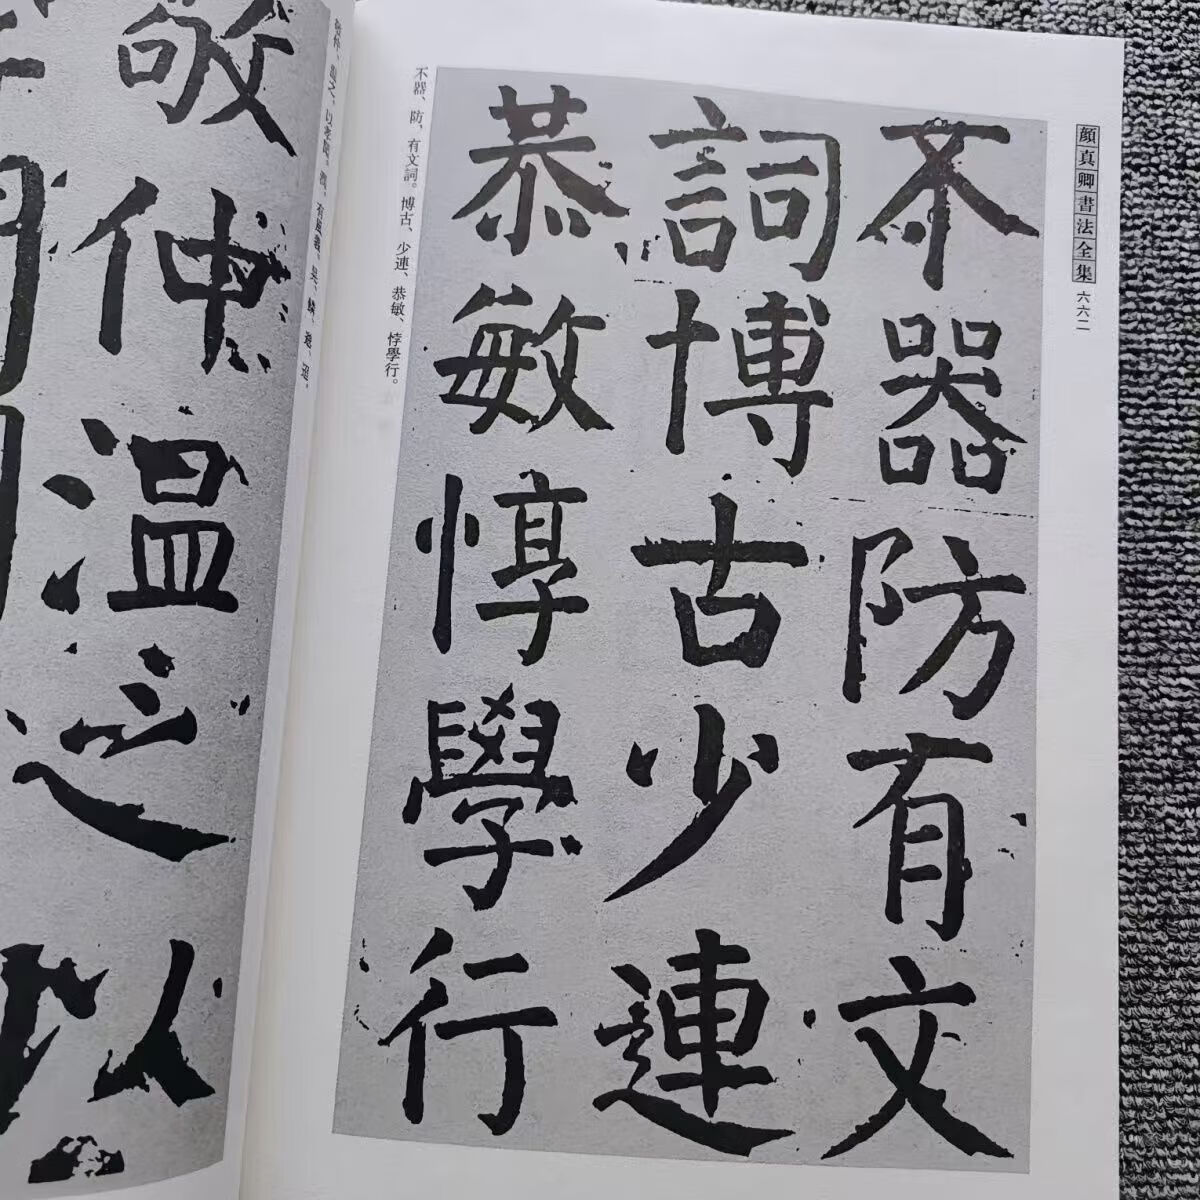 顔真卿書法全集
六六二
不器防有文
詞博古少連
恭敏惇學行
不器、防、有文詞。博古、少連、恭敏、悖學行。
敬仲温之以